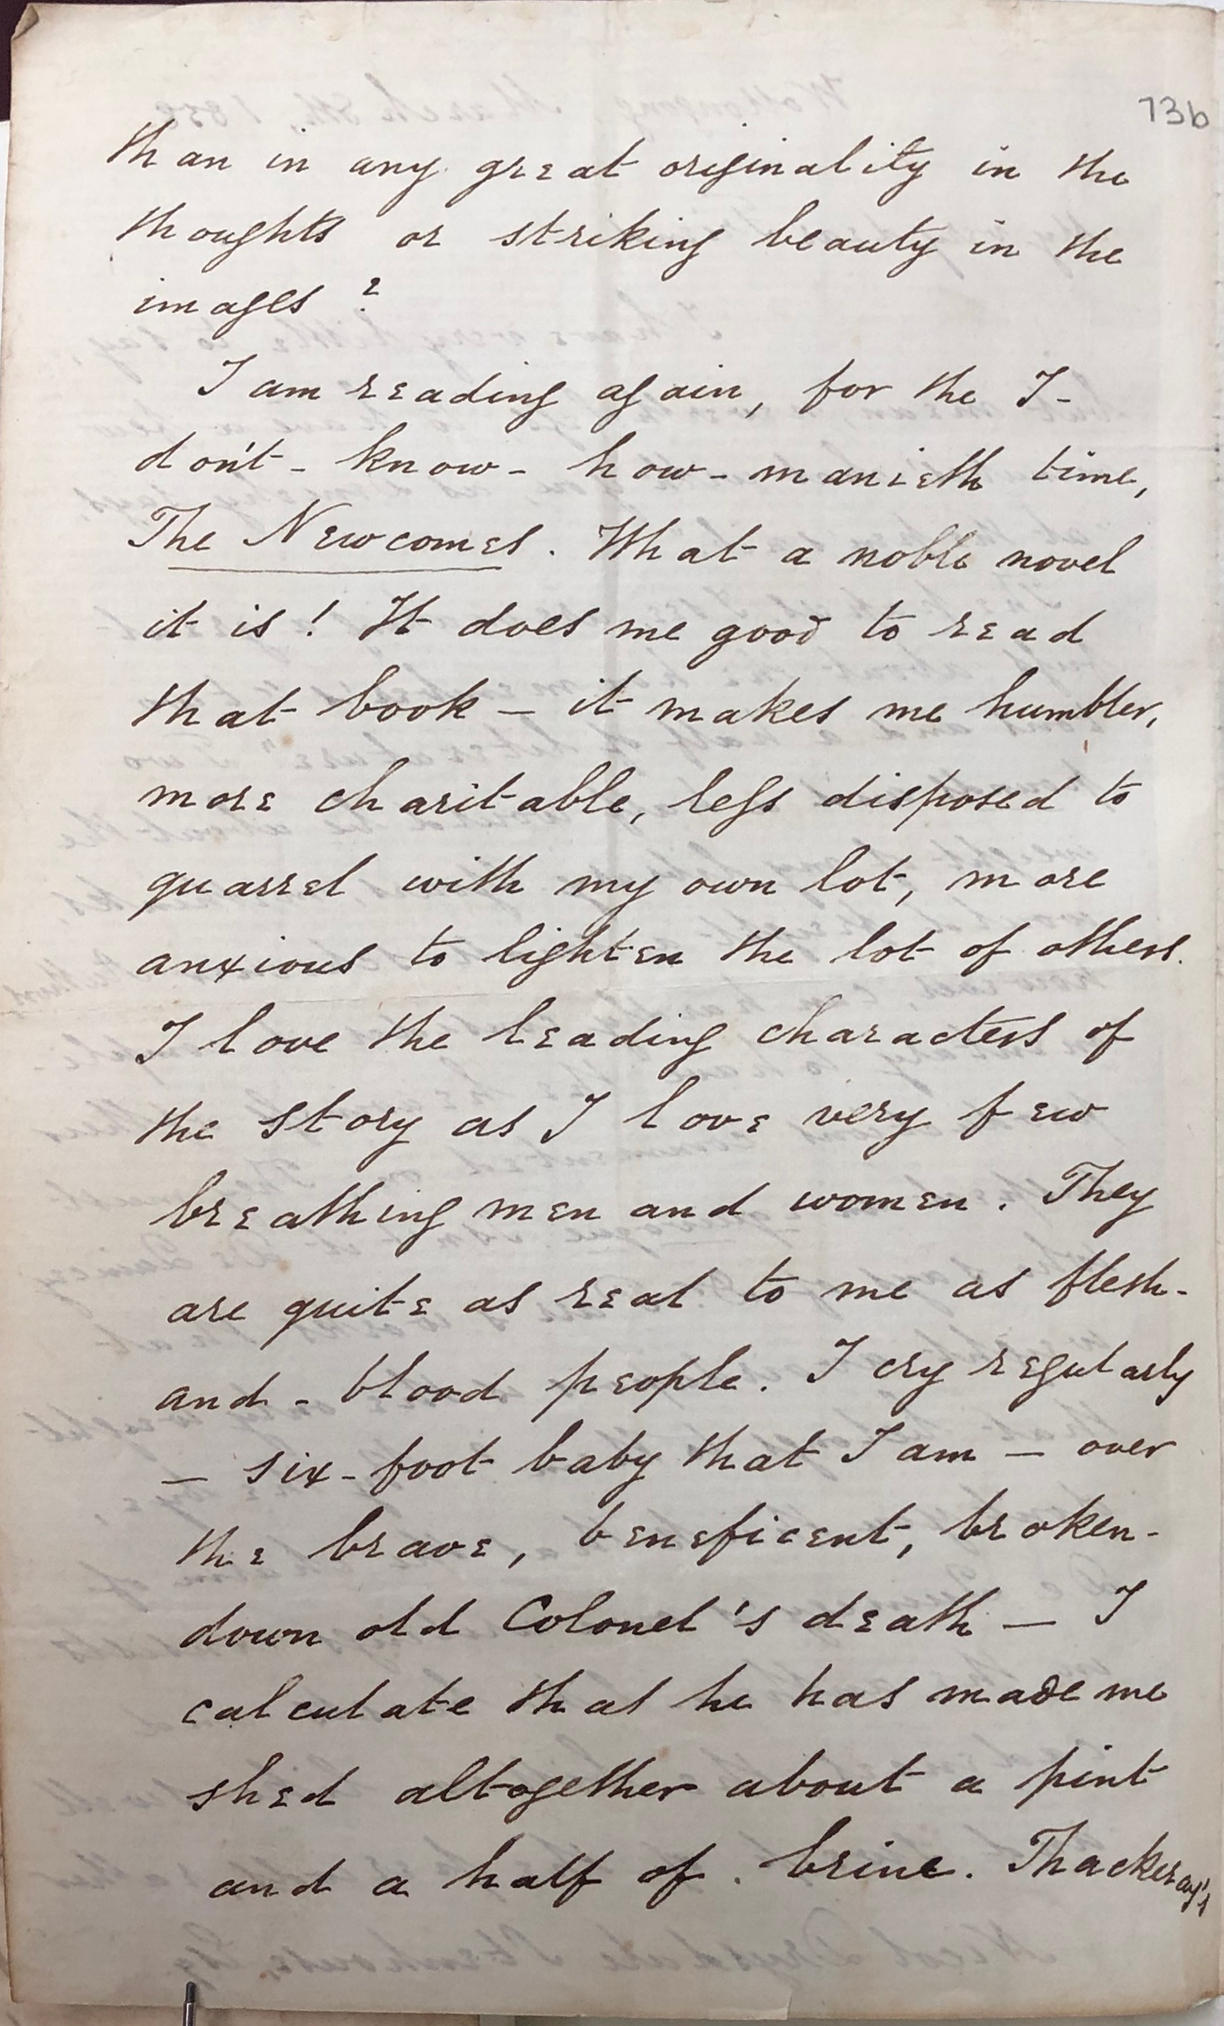 73b
than in any great originality in the
thoughts or striking beauty in the
images?
I am reading again, for the I-
don't-know-how-manieth time,
The Newcomes. What a noble novel
it is! It does me good to read
that book — it makes me humbler,
more charitable, less disposed to
quarrel with my own lot, more
anxious to lighten the lot of others.
I love the leading characters of
the story as I love very few
breathing men and women. They
are quite as real to me as flesh-
and-blood people. I cry regularly
— six-foot baby that I am — over
the brave, beneficent, broken-
down old Colonel's death — I
calculate that he has made me
shed altogether about a pint
and a half of brine. Thackeray's